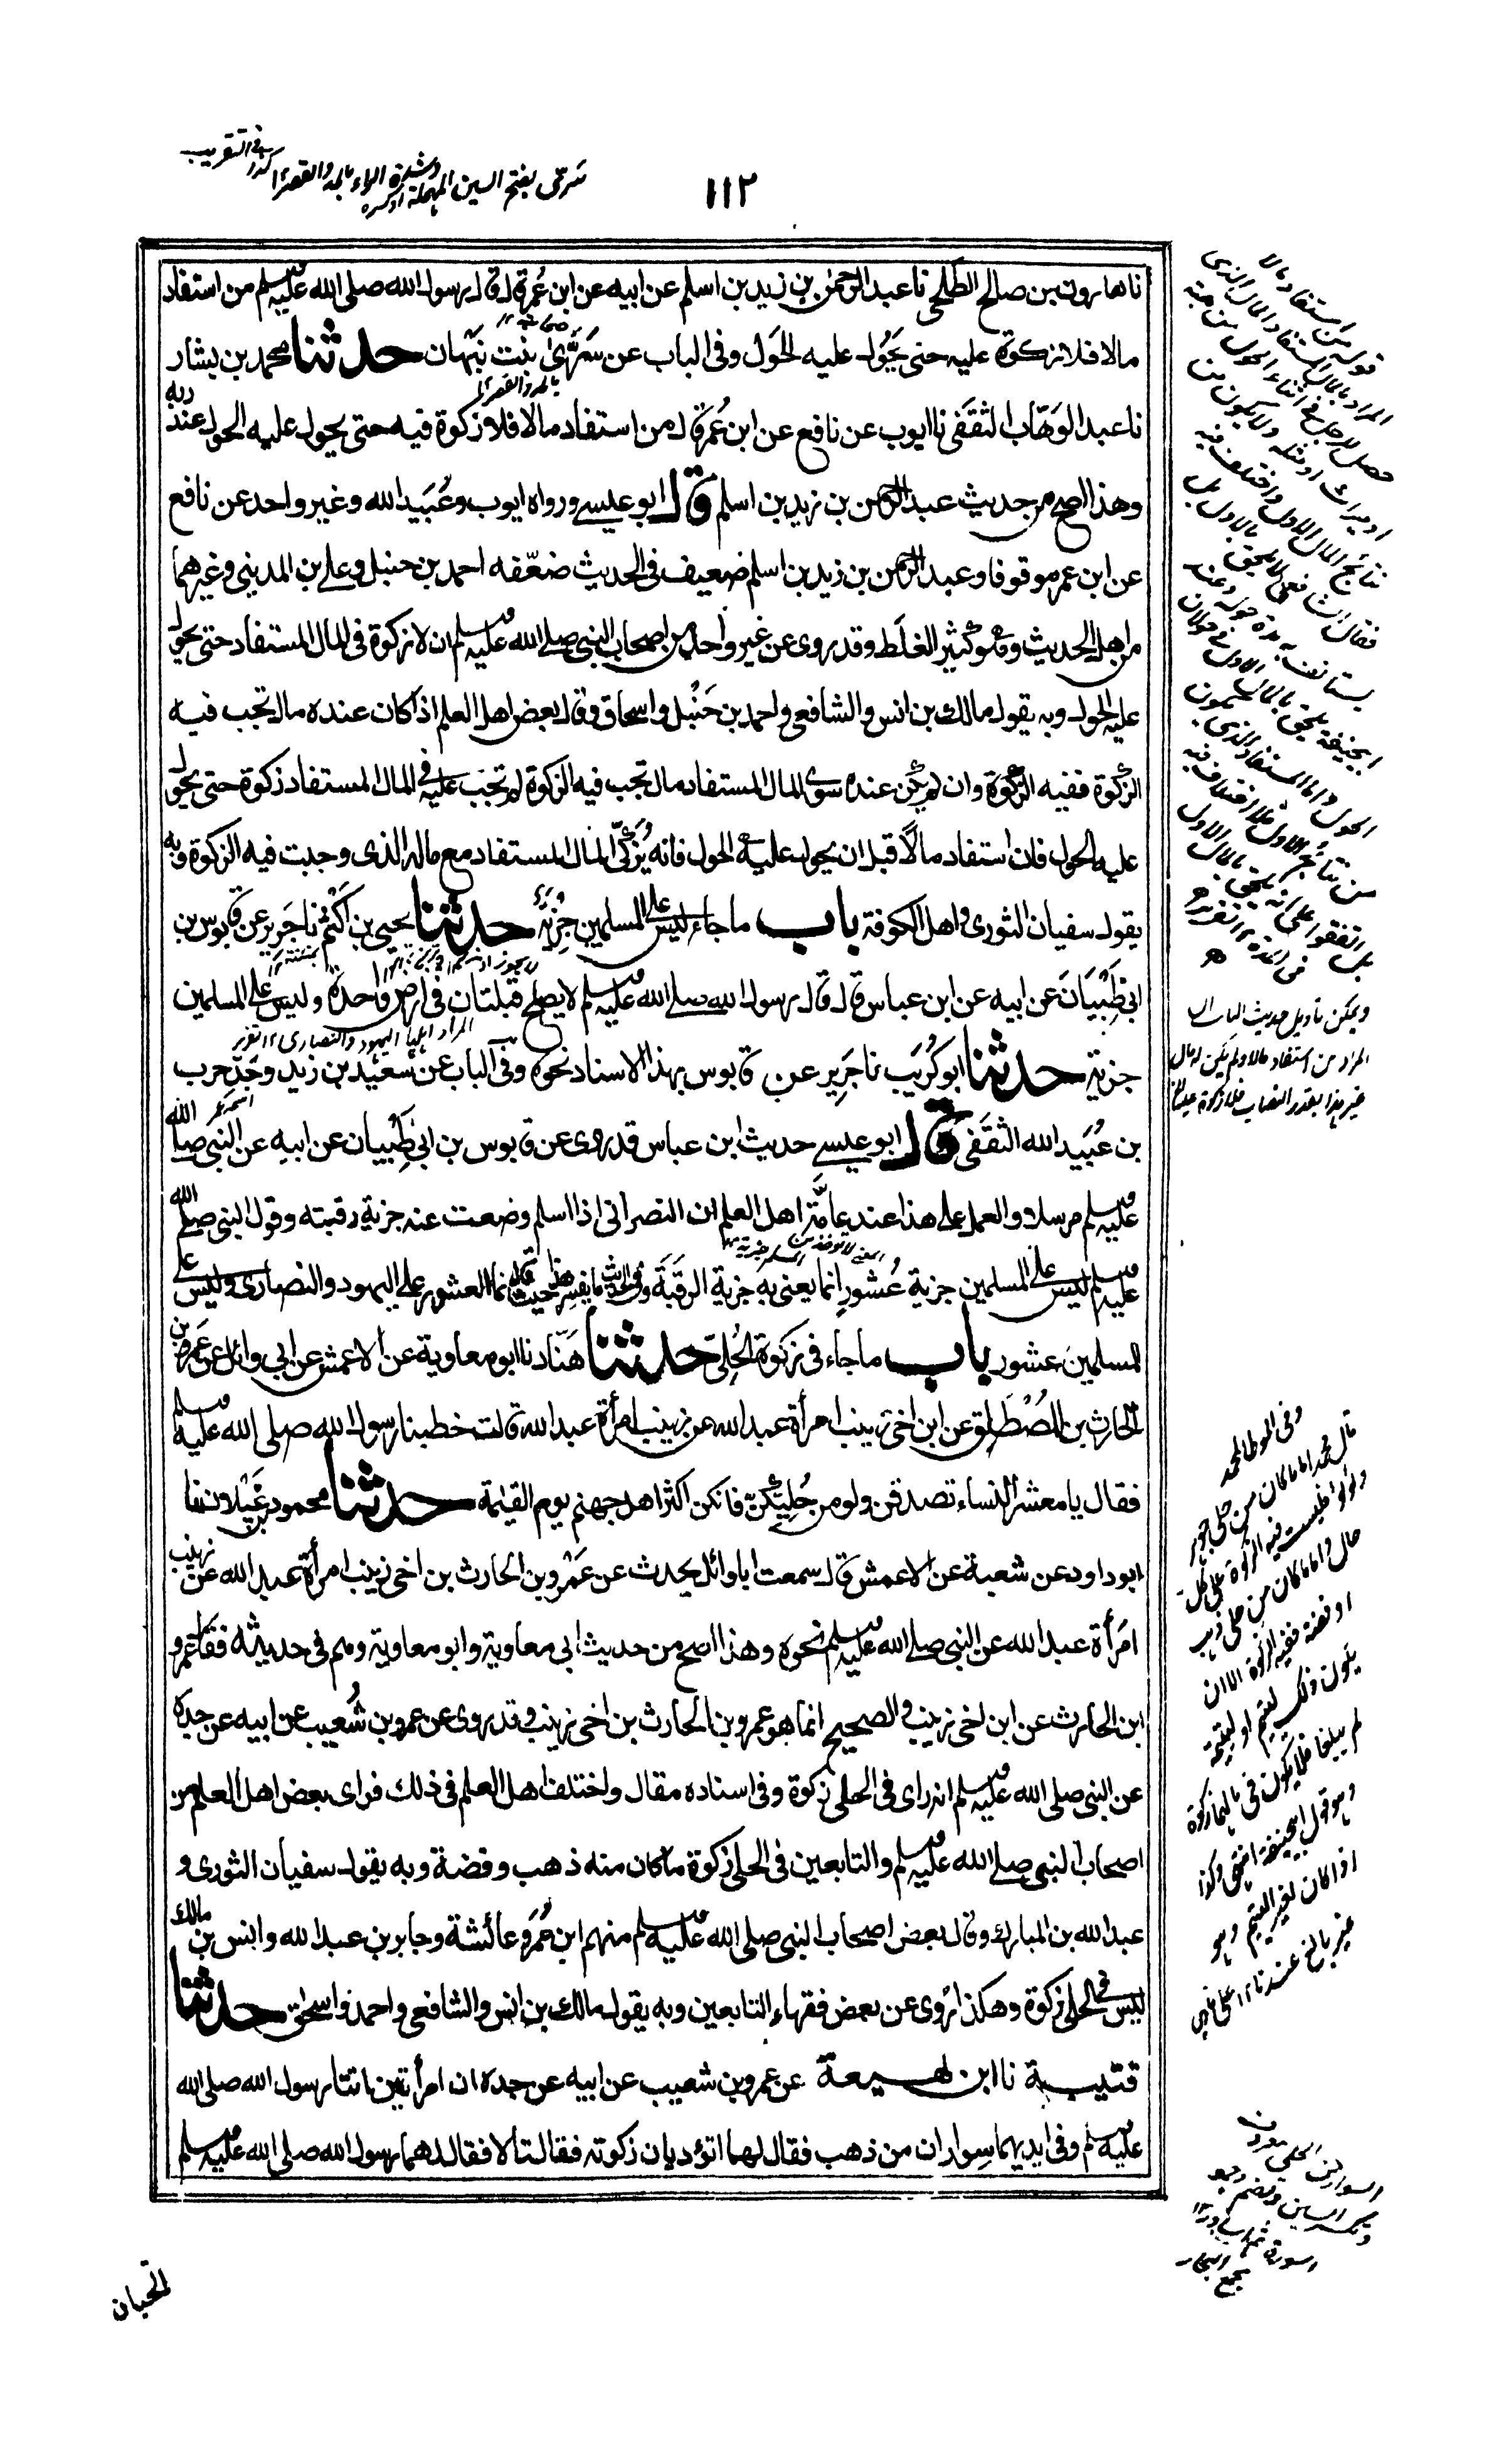 ١١٢
سَرّى بفتح السين المهملة وشدة الراء بالمد والقصر كذا فى التقريب
نا هارون بن صالح الطَّلْحى نا عبد الرحمٰن بن زيد بن اسلم عن ابيه عن ابن عُمر قال قال رسول الله صلى الله عليه وسلم من استفاد
مالا فلا زكوة عليه حتى يَحُول عليه الحَول وفى الباب عن سَرّىٰ بنت نَبْهان حدثنا محمد بن بشار
نا عبد الوَهّاب الثقَفى نا ايوب عن نافع عن ابن عُمَر قال من استفاد مالا فلا زكوة فيه حتى يحول عليه الحول عند ربه
وهذا اصح من حديث عبد الرحمن بن زيد بن اسلم قال ابو عيسے ورواه ايوب وعُبَيد الله وغير واحد عن نافع
عن ابن عمر موقوفا وعبد الرحمن بن زيد بن اسلم ضعيف فى الحديث ضعّفه احمد بن حنبل وعلے بن المدينى وغيرهما
من اهل الحديث وهو كثير الغلَط وقد روى عن غير واحد من اصحاب النبى صلے الله عليه وسلم ان لا زكوة فى المال المستفاد حتى يحول
عليه الحول وبه يقول مالك بن انس والشافعى واحمد بن حَنْبل واسحاق وقال بعض اهل العلم اذا كان عنده مال تجب فيه
الزكوة ففيه الزكوة وان لم يكن عنده سوى المال المستفاد مال تجب فيه الزكوة لم تجب عليه فى المال المستفاد زكوة حتى يحول
عليه الحول فان استفاد مالًا قبل ان يحول عليه الحول فانه يُزكّى المال المستفاد مع ماله الذى وجبت فيه الزكوة وبه
يقول سفيان الثورى واهل الكوفة باب ما جاء ليس على المسلمين جِزْيَة حدثنا يحيى بن اَكْثَم نا جَرير عن قابوس بن
ابى ظَبْيَانَ عن ابيه عن ابن عباس قال قال رسول الله صلے الله عليه وسلم لا يصلح قبلتان فى ارض واحدة وليس على المسلمين
جزية حدثنا ابو كُرَيب نا جَرِير عن قابوس بهذا الاسناد نحوه وفى الباب عن سعيد بن زيد وجَدّ حرب
بن عُبَيد الله الثقَفى قال ابو عيسے حديث ابن عباس قد روى عن قابوس بن ابى ظَبْيان عن ابيه عن النبى صلى الله
عليه وسلم مرسلا والعمل على هذا عند عامَّة اهل العلم ان النصرانى اذا اسلم وضعت عنه جزية رقبته وقول النبى صلے الله
عليه وسلم ليس على المسلمين جزية عُشور انما يعنى به جزية الرقَبَة وفى الحديث ما يفسر هذا حيث قال انما العشور على اليهود والنصارى وليس على
المسلمين عشور باب ما جاء فى زكوة الحُلِىّ حدثنا هَنّاد نا ابو معاوية عن الاعمش عن ابى وائل عن عَمرو بن
الحارث بن المُصْطَلِق عن ابن اخى زينب امرأة عبد الله عن زينب امرأة عبد الله قالت خطبنا رسول الله صلى الله عليه وسلم
فقال يا معشر النساء تصدقن ولو من حُلِيّكُنّ فانكن اكثر اهل جهنم يوم القيٰمة حدثنا محمود بن غَيْلان نا
ابو داود عن شعبة عن الاعمش قال سمعت ابا وائل يحدث عن عَمْرو بن الحارث بن اخى زينب امرأة عبد الله عن زينب
امَرأة عبد الله عن النبى صلے الله عليه وسلم نحوه وهذا اصح من حديث ابى معاوية وابو معاوية وهم فى حديثه فقال عمرو
ابن الحارث عن ابن اخى زينب والصحيح انما هو عمرو بن الحارث بن اخى زينب وقد روى عن عمرو بن شُعيب عن ابيه عن جده
عن النبى صلى الله عليه وسلم انه راى فى الحلى زكوة وفى اسناده مقال واختلف اهل العلم فى ذلك فراى بعض اهل العلم من
اصحاب النبى صلے الله عليه وسلم والتابعين فى الحلى زكوة ما كان منه ذهب وفضة وبه يقول سفيان الثورى و
عبد الله بن المبارك وقال بعض اصحاب النبى صلى الله عليه وسلم منهم ابن عُمَر وعائشة وجابر بن عبد الله وانس بن مالك
ليس فى الحلى زكوة وهكذا رُوى عن بعض فقهاء التابعين وبه يقول مالك بن انس والشافعى واحمد واسحٰق حدثنا
قتيبة نا ابن لهيعة عن عمرو بن شعيب عن ابيه عن جده ان امرأتين اتتا رسول الله صلى الله
عليه وسلم وفى ايديهما سِواران من ذهب فقال لهما اتؤديان زكوته فقالتا لا فقال لهما رسول الله صلى الله عليه وسلم
قوله من استفاد مالا
المراد بالمال المستفاد المال الذى
ويمكن تاويل حديث الباب ان
المراد من استفاد مالا ولم يكن له مال
غير هذا بقدر النصاب فلا زكوة عليه
وفى الموطا لمحمد
قال محمد اما ما كان من حلى جوهر
ولؤلؤ فليست فيه الزكوة على كل
حال واما ما كان من حلى ذهب
او فضة ففيه الزكوة الا ان
يكون ذلك ليتيم او يتيمة
لم يبلغا فلا يكون فى مالهما زكوة
وهو قول ابى حنيفة انتهى
السوار من الحلى معروف
وبكسر السين وتضم وجمعه
اسورة
مجمع البحار
اتحبان